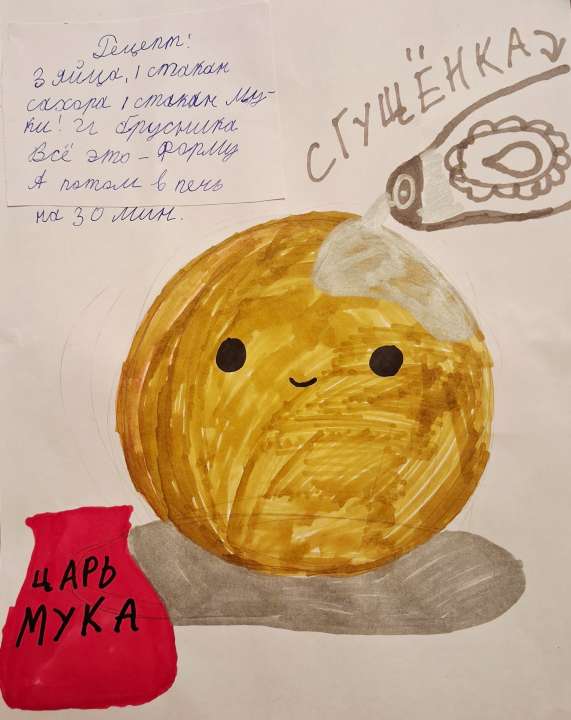 Рецепт!
3 яйца, 1 стакан
сахара 1 стакан му-
ки! 2г брусника
Всё это - форму
А потом в печь
на 30 мин.
СГУЩЁНКА
ЦАРЬ
МУКА